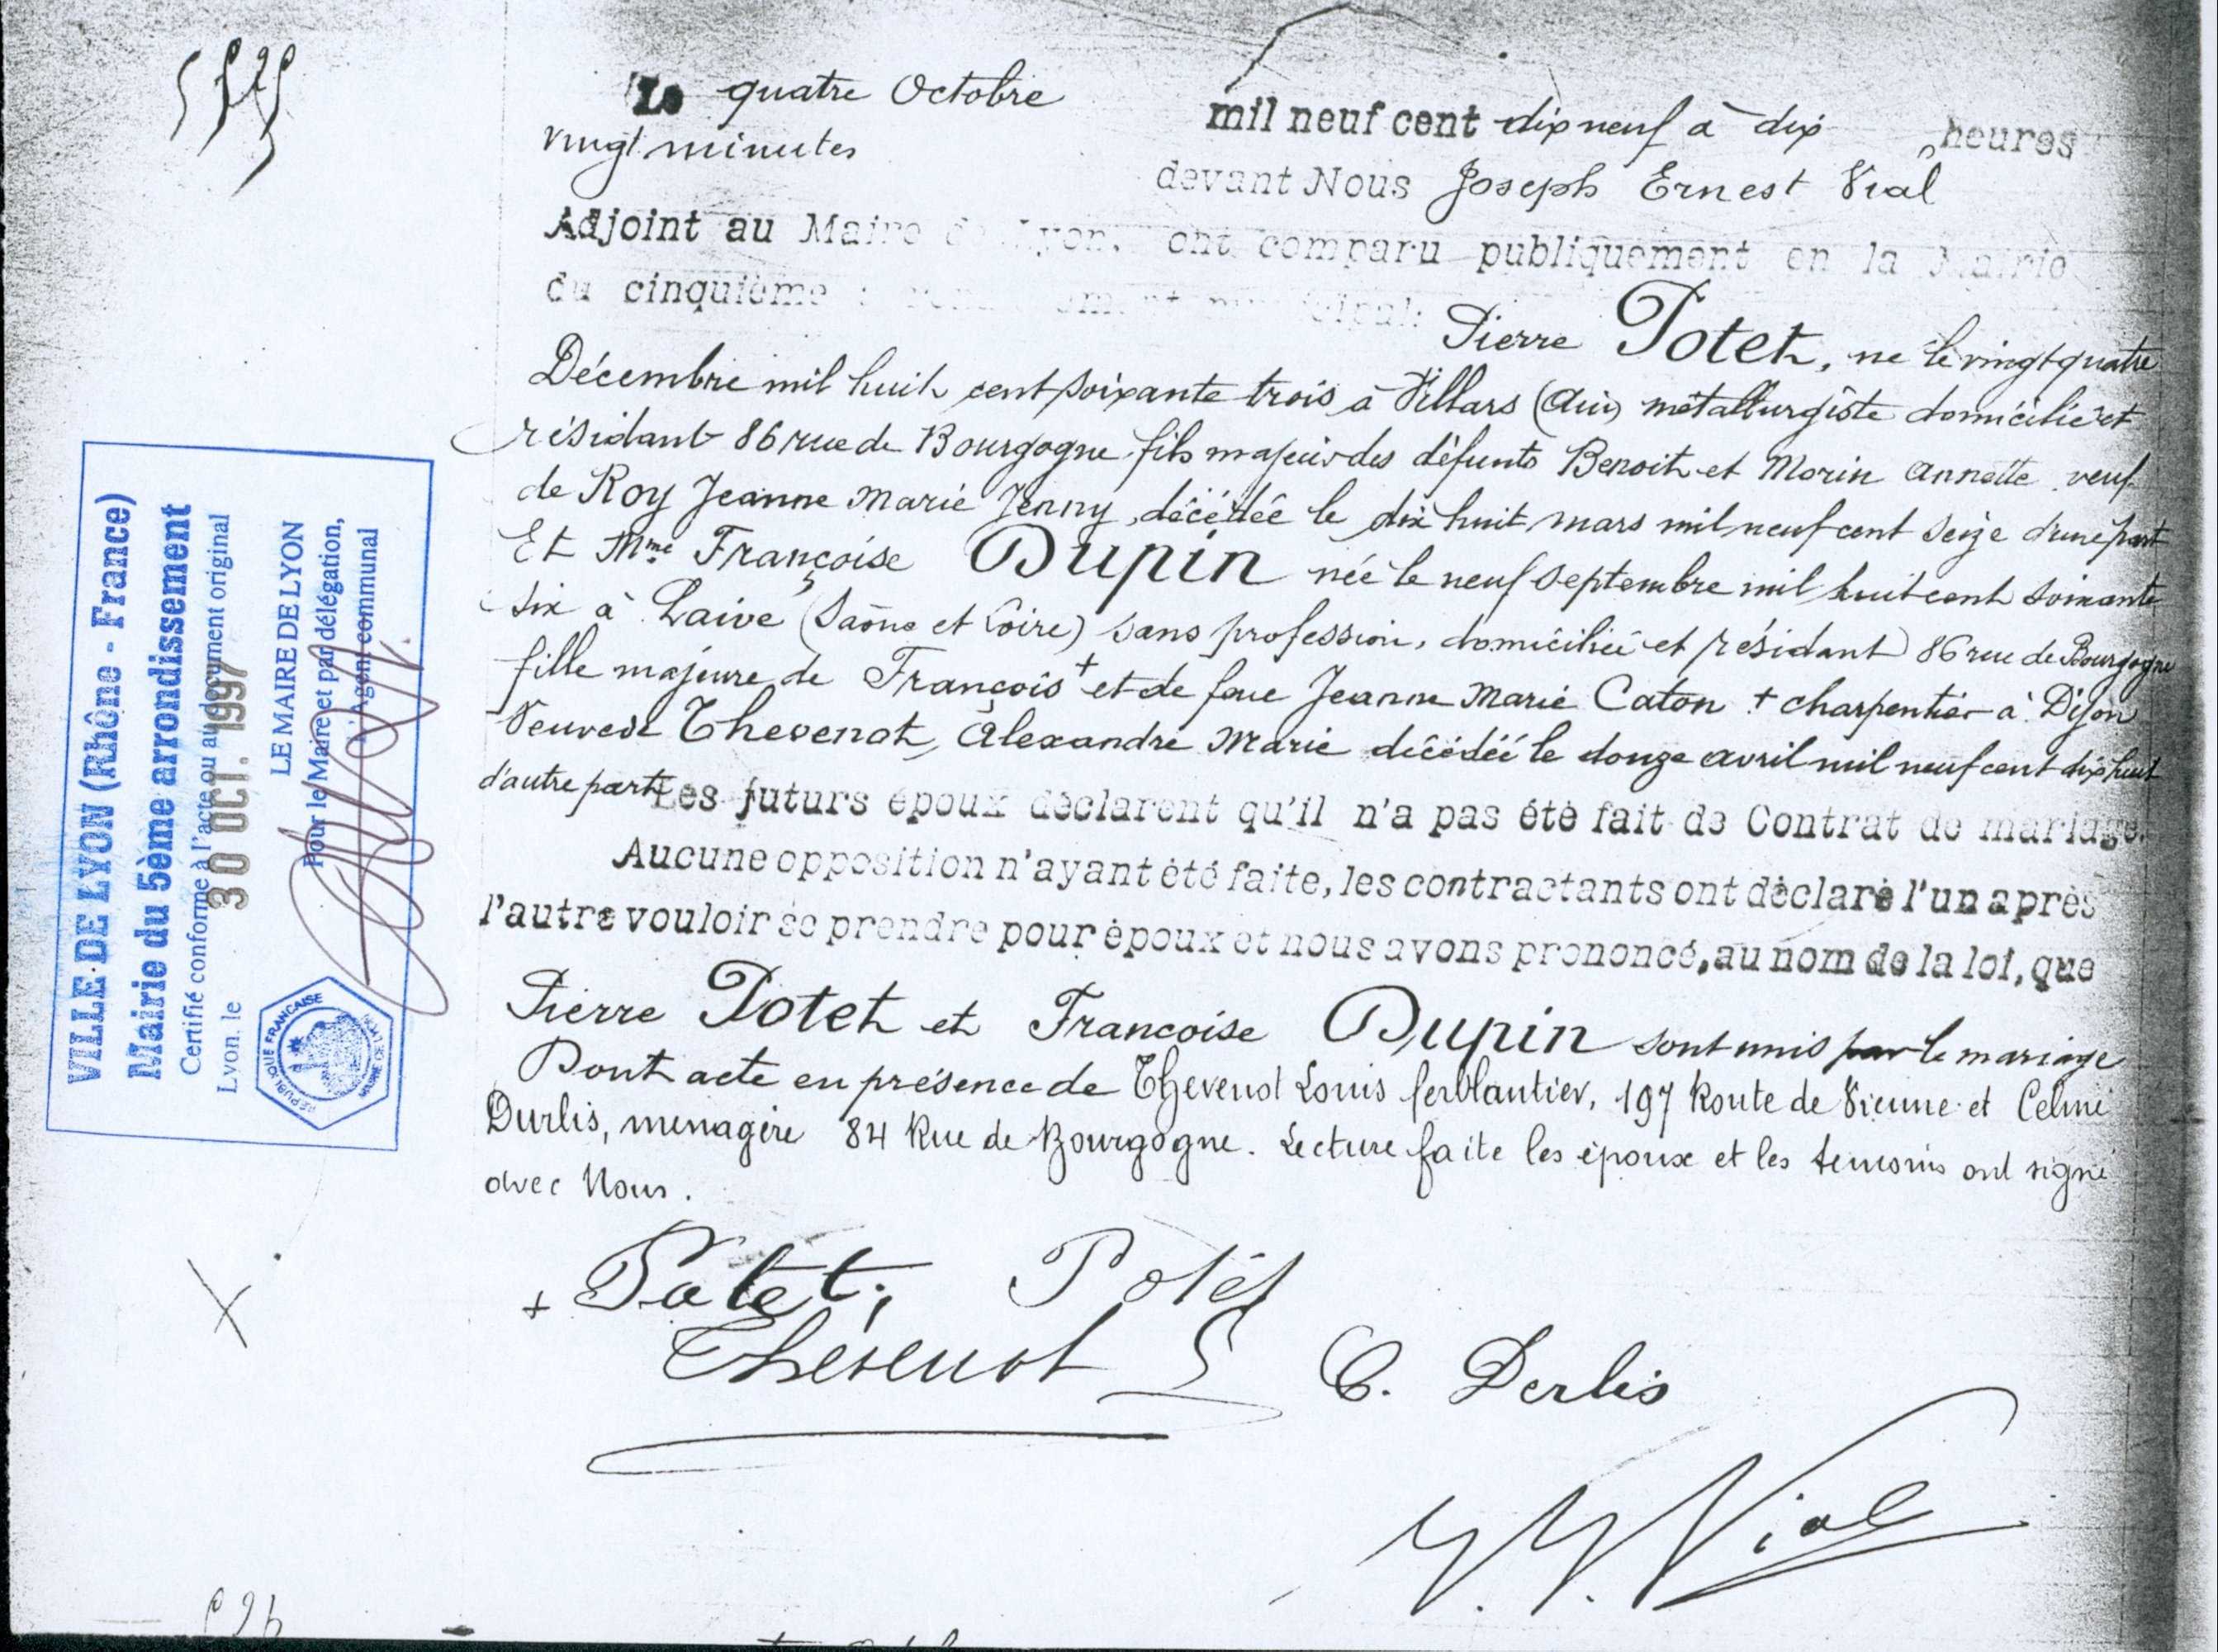 Le quatre Octobre mil neuf cent dix neuf à dix heures
vingt minutes devant Nous Joseph Ernest Vial
Adjoint au Maire de Lyon, ont comparu publiquement en la Mairie
du cinquième
Pierre Potet, né le vingt quatre
Décembre mil huit cent soixante trois à Villars (Ain) métallurgiste domicilié et
résidant 86 rue de Bourgogne fils majeur des défunts Benoit et Morin Annette veuf
de Roy Jeanne Marie Jenny, décédée le dix huit mars mil neuf cent seize d'une part
Et Mme Françoise Dupin née le neuf Septembre mil huit cent soixante
six à Laive (Saône et Loire) sans profession, domiciliée et résidant 86 rue de Bourgogne
fille majeure de François + et de feue Jeanne Marie Caton + charpentier à Dijon
Veuve de Thevenot, Alexandre Marie décédéé le douze avril mil neuf cent dix huit
d'autre part Les futurs époux déclarent qu'il n'a pas été fait de Contrat de mariage.
Aucune opposition n'ayant été faite, les contractants ont déclaré l'un après
l'autre vouloir se prendre pour époux et nous avons prononcé, au nom de la loi, que
Pierre Potet et Francoise Dupin sont unis par le mariage
Dont acte en présence de Thevenot Louis ferblantier, 197 Route de Vienne et Celine
Durlis, menagère 84 Rue de Bourgogne. Lecture faite les époux et les temoins ont signé
avec Nous.
+ Potet, Potet
Thévenot
C. Derlis
Vial
VILLE DE LYON (Rhône - France)
Mairie du 5ème arrondissement
Certifié conforme à l'acte ou au document original
Lyon, le 30 OCT. 1997
LE MAIRE DE LYON
Pour le Maire et par délégation,
l'Agent communal
REPUBLIQUE FRANÇAISE